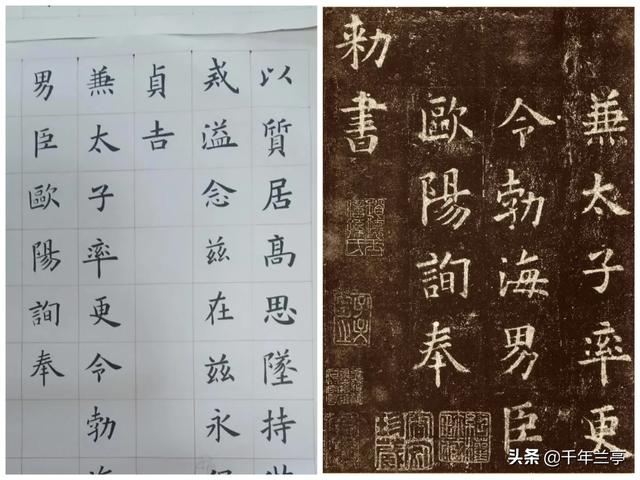 以質居高思墜持
戒溢念茲在茲永
貞吉
兼太子率更令勃
男臣歐陽詢奉
兼太子率更
令勃海男臣
歐陽詢奉
勑書
头条 @千年兰亭